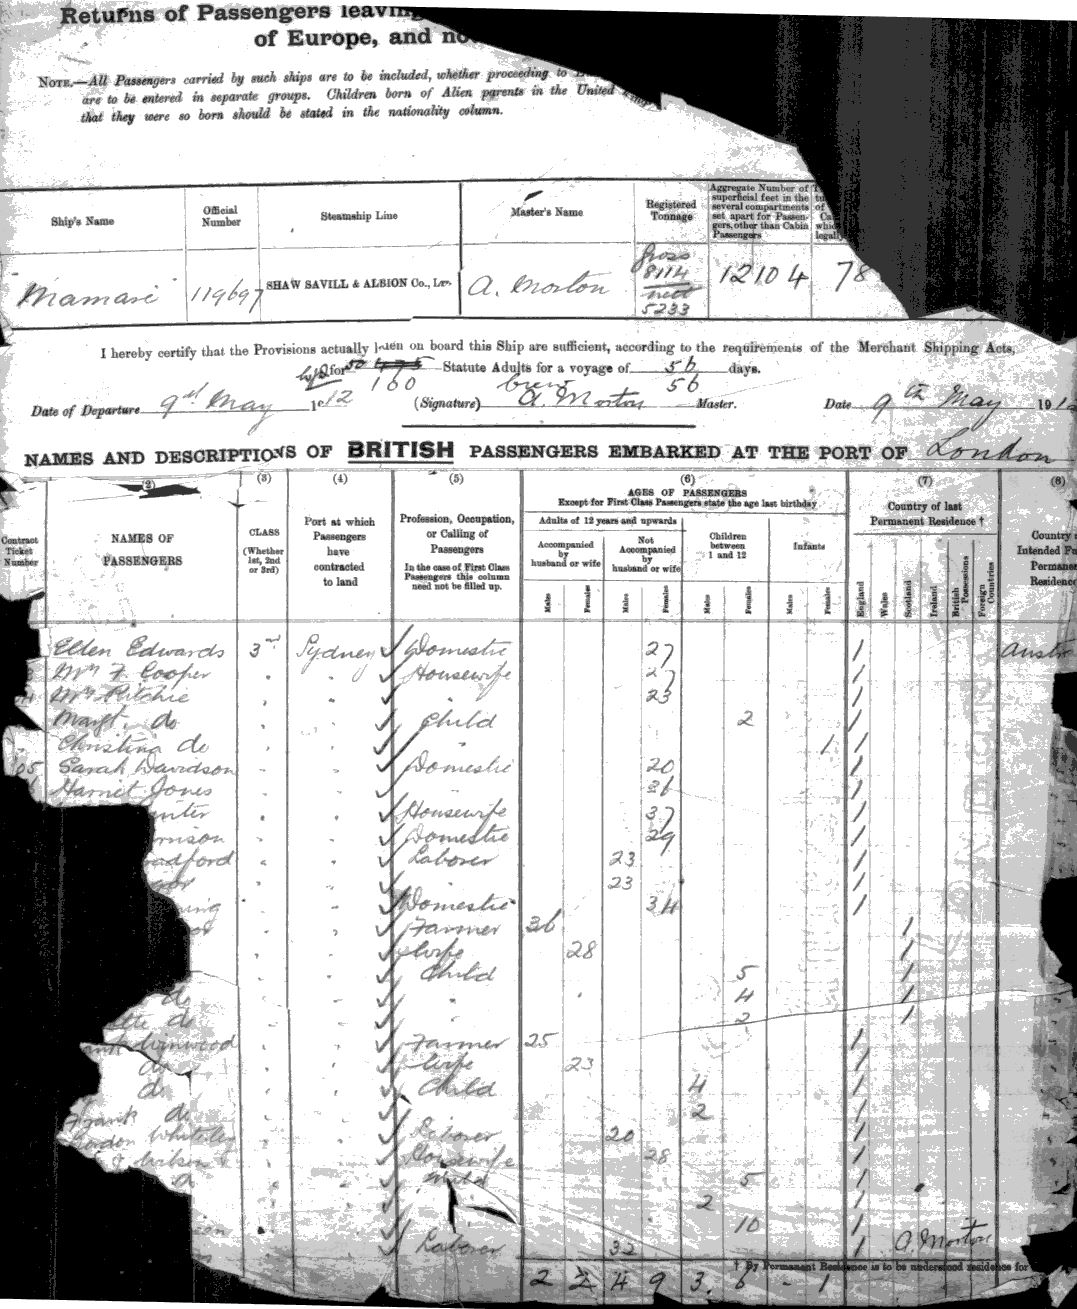 Returns of Passengers leaving
of Europe, and no
NOTE.—All Passengers carried by such ships are to be included, whether proceeding to
are to be entered in separate groups. Children born of Alien parents in the United King
that they were so born should be stated in the nationality column.
Ship's Name
Official Number
Steamship Line
Master's Name
Registered Tonnage
Aggregate Number of superficial feet in the several compartments set apart for Passengers, other than Cabin Passengers
Mamari 119697 SHAW SAVILL & ALBION Co., LTD. A. Morton
Gross 8114
nett 5233
12104 78
I hereby certify that the Provisions actually laden on board this Ship are sufficient, according to the requirements of the Merchant Shipping Acts,
for 50 475 Statute Adults for a voyage of 56 days.
160 crew 56
Date of Departure 9th May 1912 (Signature) A. Morton Master. Date 9th May 191
NAMES AND DESCRIPTIONS OF BRITISH PASSENGERS EMBARKED AT THE PORT OF London
(2) (3) (4) (5) (6) (7) (8)
Contract Ticket Number
NAMES OF PASSENGERS
CLASS (Whether 1st, 2nd or 3rd)
Port at which Passengers have contracted to land
Profession, Occupation, or Calling of Passengers
In the case of First Class Passengers this column need not be filled up.
AGES OF PASSENGERS
Except for First Class Passengers state the age last birthday
Adults of 12 years and upwards
Accompanied by husband or wife
Not Accompanied by husband or wife
Children between 1 and 12
Infants
Males Females Males Females Males Females Males Females
Country of last Permanent Residence †
England Wales Scotland Ireland British Possessions Foreign Countries
Country
Intended Fu
Permane
Residenc
Ellen Edwards 3rd Sydney Domestic 27 1 Austr
Mrs F. Cooper " " Housewife 27 1
Mrs Ritchie " " " 23 1
Margt. do " " Child 2 1
Christina do " " " 1 1
05 Sarah Davidson " " Domestic 20 1
Harriet Jones " " " 26 1
unter " " Housewife 37 1
rrison " " Domestic 29 1
radford " " Laborer 23 1
" " " 23 1
ning " " Domestic 34 1
" " Farmer 36 1
" " Wife 28 1
" " Child 5 1
do " " " 4 1
do " " " 2 1
Linwood " " Farmer 25 1
do " " Wife 23 1
do " " Child 4 1
Frank do " " " 2 1
Whiteley " " Laborer 20 1
" " Housewife 28 1
d " " Child 5 1
" " 2 1
" " 10 1
" " Laborer 32 1 A. Morton
† By Permanent Residence is to be understood residence for
2 2 4 9 3 6 - 1